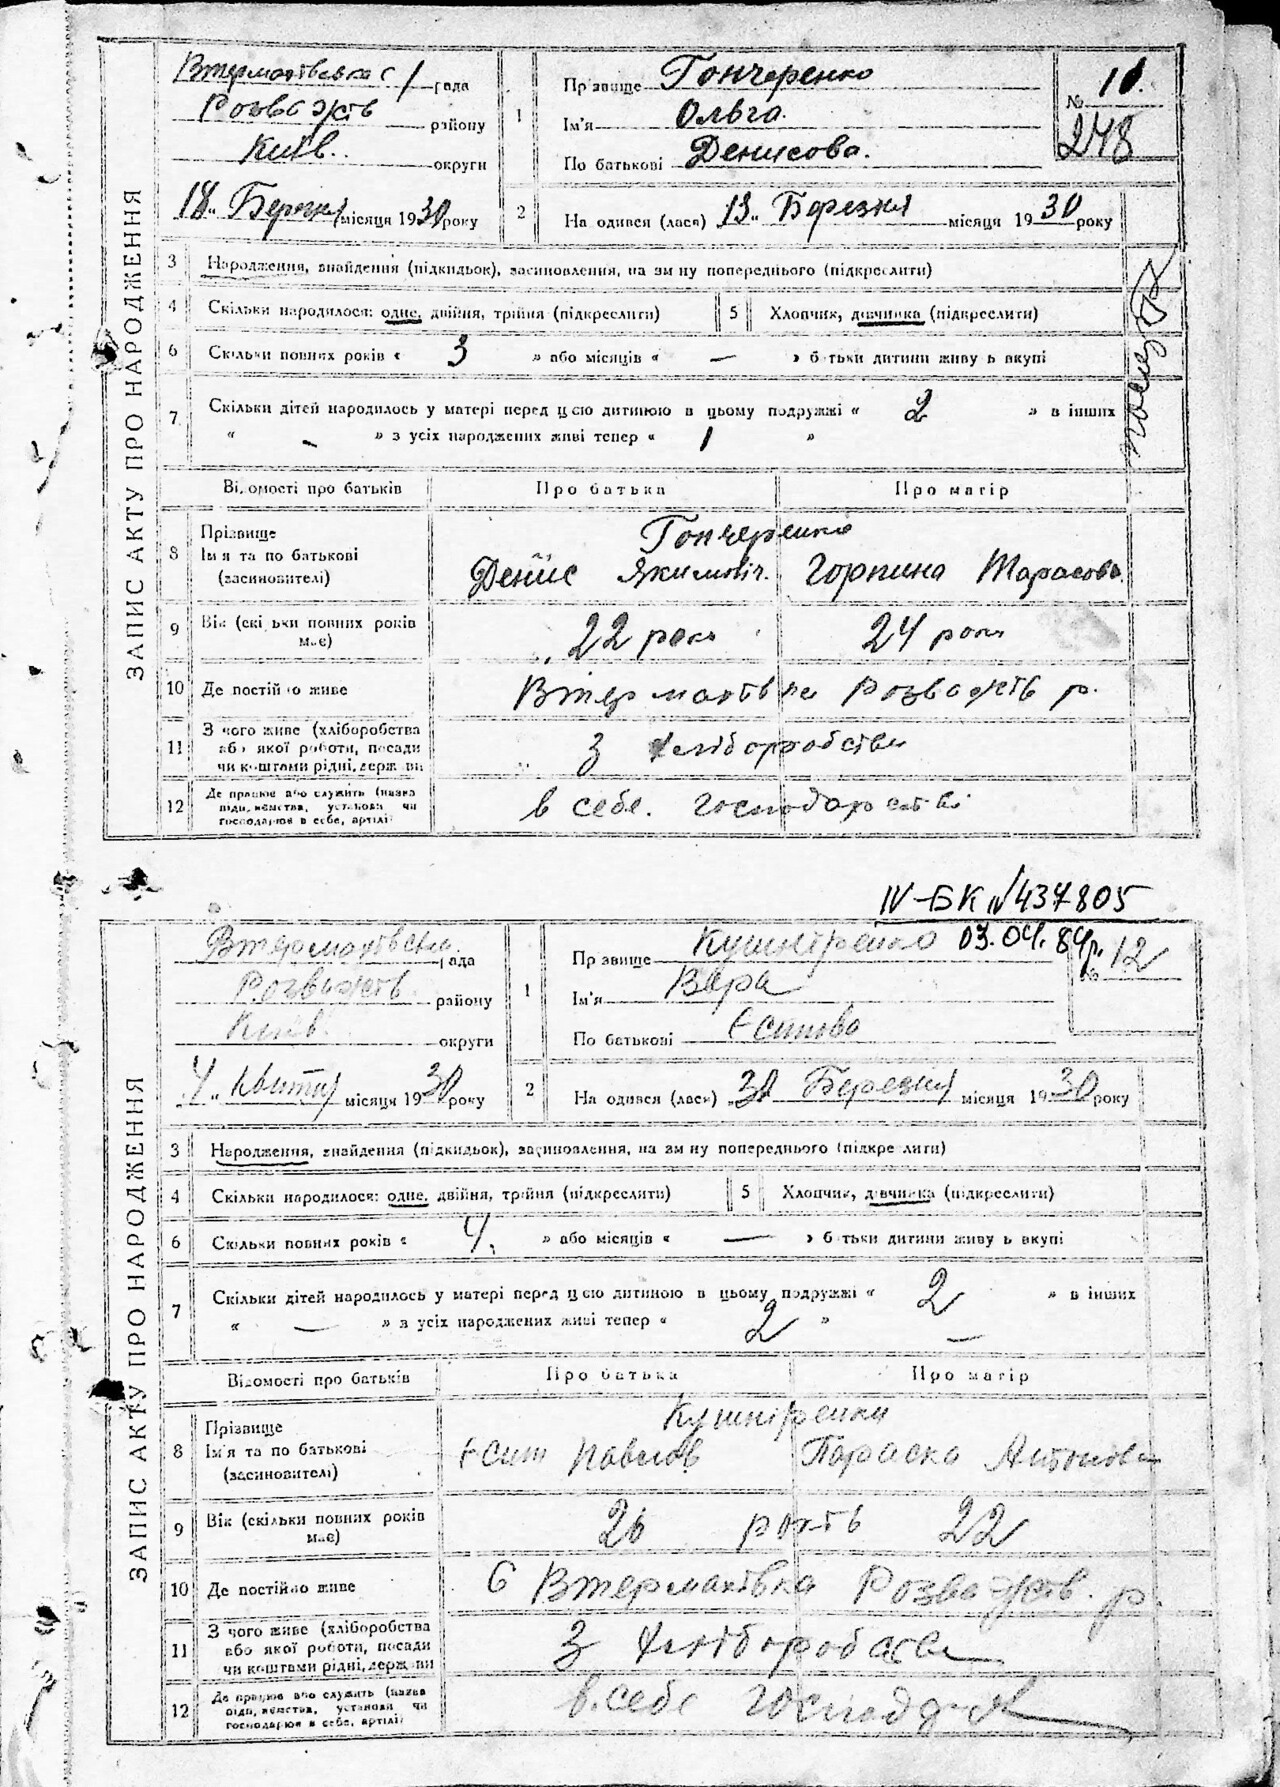 ЗАПИС АКТУ ПРО НАРОДЖЕННЯ
рада
району
Київ. округи
18 Березня місяця 1930 року
1
Прізвище Гончаренко
Ім'я Ольга.
По батькові Денисова.
№ 11.
248
2 На одився (лася) 13 Березня місяця 1930 року
3 Народження, знайдення (підкидьок), засиновлення, на зм ну попереднього (підкреслити)
4 Скільки народилося: одне, двійня, трійня (підкреслити) 5 Хлопчик, дівчинка (підкреслити)
6 Скільки повних років « 3 » або місяців « — » б тьки дитини живу ь вкупі
7 Скільки дітей народилось у матері перед цією дитиною в цьому подружжі « 2 » в інших
« - » з усіх народжених живі тепер « 1 »
Відомості про батьків Про батька Про матір
8 Прізвище
Ім'я та по батькові
(засиновителі)
Гончаренко
Денис Якимович. Горпина Тарасова
9 Вік (скільки повних років
має)
22 роки 24 роки
10 Де постійно живе
р.
11 З чого живе (хліборобства
або якої роботи, посади
чи коштами рідні, держави
З хліборобства
12 Де працює або служить (назва
підприємства, установи чи
господарює в себе, артілі)
в себе. господарстві
IV-БК №437805
03.04.84р.
ЗАПИС АКТУ ПРО НАРОДЖЕННЯ
рада
району
Київ. округи
4 Квітня місяця 1930 року
1
Прізвище Кушніренко
Ім'я Вера
По батькові
№ 12
2 На одився (лася) 30 Березня місяця 1930 року
3 Народження, знайдення (підкидьок), засиновлення, на зм ну попереднього (підкреслити)
4 Скільки народилося: одне, двійня, трійня (підкреслити) 5 Хлопчик, дівчинка (підкреслити)
6 Скільки повних років « 4. » або місяців « — » б тьки дитини живу ь вкупі
7 Скільки дітей народилось у матері перед цією дитиною в цьому подружжі « 2 » в інших
« — » з усіх народжених живі тепер « 2 » —
Відомості про батьків Про батька Про матір
8 Прізвище
Ім'я та по батькові
(засиновителі)
Кушніренки
Павлов Параска Антонова
9 Вік (скільки повних років
має)
26 років 22
10 Де постійно живе
р.
11 З чого живе (хліборобства
або якої роботи, посади
чи коштами рідні, держави
З хліборобства
12 Де працює або служить (назва
підприємства, установи чи
господарює в себе, артілі)
в себе